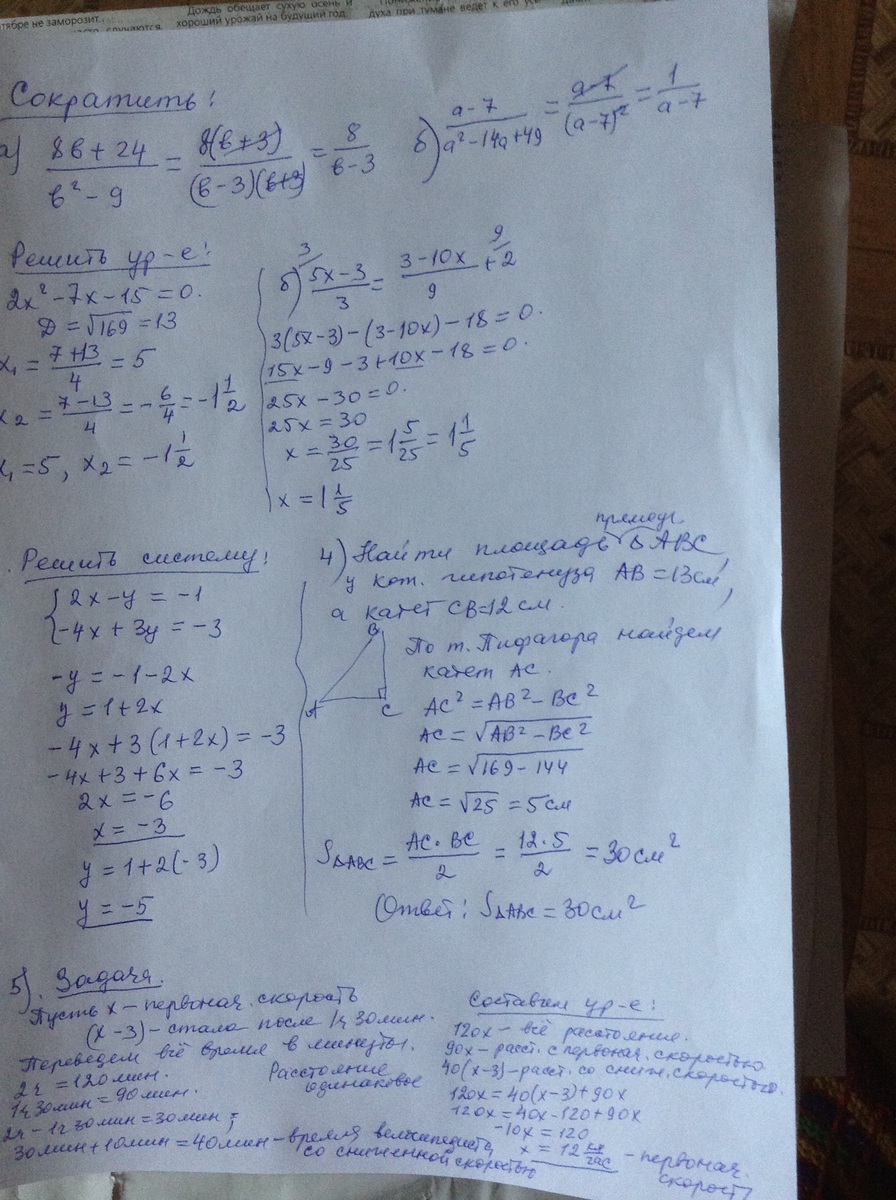 тябре не заморозит.
Дождь обещает сухую осень и
хороший урожай на будущий год.
духа при тумане ведет к его
Сократить!
а) 8в + 24 / в² - 9 = 8(в+3) / (в-3)(в+3) = 8 / в-3
б) a-7 / a²-14a+49 = a-7 / (a-7)² = 1 / a-7
Решить ур-е!
2x²-7x-15=0.
D=√169=13
x₁ = 7+13 / 4 = 5
x₂ = 7-13 / 4 = -6/4 = -1 1/2
x₁=5, x₂ = -1 1/2
б) 3/ 5x-3 / 3 = 3-10x / 9 + 9/ 2
3(5x-3)-(3-10x)-18=0.
15x-9-3+10x-18=0.
25x-30=0.
25x=30
x = 30/25 = 1 5/25 = 1 1/5
x = 1 1/5
Решить систему!
{ 2x-y = -1
-4x+3y = -3
-y = -1-2x
y = 1+2x
-4x+3(1+2x) = -3
-4x+3+6x = -3
2x = -6
x = -3
y = 1+2(-3)
y = -5
прямоуг
4) Найти площадь Δ ABC,
у кот. гипотенуза AB=13см,
а катет CB=12 см.
B
A
C
По т. Пифагора найдем
катет AC.
AC²=AB²-BC²
AC=√AB²-BC²
AC=√169-144
AC=√25 = 5см
SΔABC = AC·BC / 2 = 12·5 / 2 = 30см²
Ответ: SΔABC = 30см²
5). Задача.
Пусть x - первонач. скорость
(x-3)-стала после 1ч 30мин.
Переведем всё время в минуты.
2ч =120мин.
1ч 30мин = 90мин.
2ч-1ч 30мин=30мин;
30мин+10мин=40мин-время велосипедиста
со сниженной скоростью
Расстояние
одинаковое
Составим ур-е:
120x - всё расстояние.
90x - расст. с первонач. скоростью
40(x-3)-расст. со сниж. скоростью.
120x=40(x-3)+90x
120x=40x-120+90x
-10x = 120
x = 12 км/час - первонач.
скорость